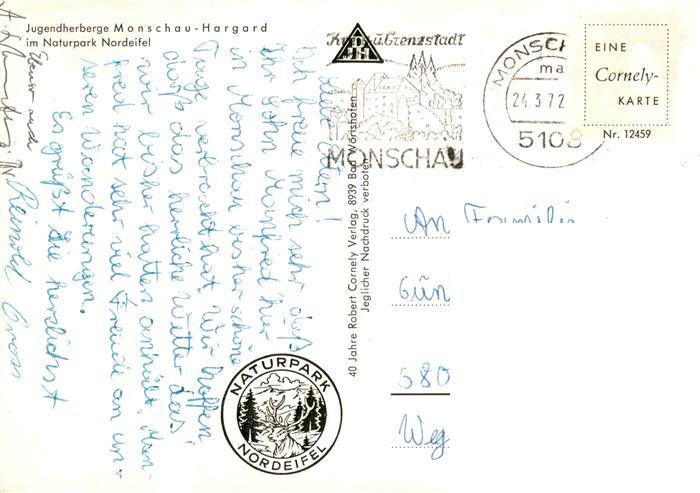 Jugendherberge Monschau-Hargard
im Naturpark Nordeifel
Kreis- u. Grenzstadt
MONSCHAU
MONSCH
24.3.72
5108
EINE
Cornely-
KARTE
Nr. 12459
40 Jahre Robert Cornely Verlag, 8939 Bad Wörishofen
Jeglicher Nachdruck verboten
Liebe Eltern!
Ich freue mich sehr, daß
Ihr Sohn Manfred hier
in Monschau bisher schöne
Tage verbracht hat. Wir hoffen,
daß das herrliche Wetter, das
wir bisher hatten, anhält. Man-
fred hat sehr viel Freude an un-
seren Wanderungen.
Es grüßt Sie herzlichst
Reinold Gross
An Familie
Gün
580
Weg
NATURPARK
NORDEIFEL